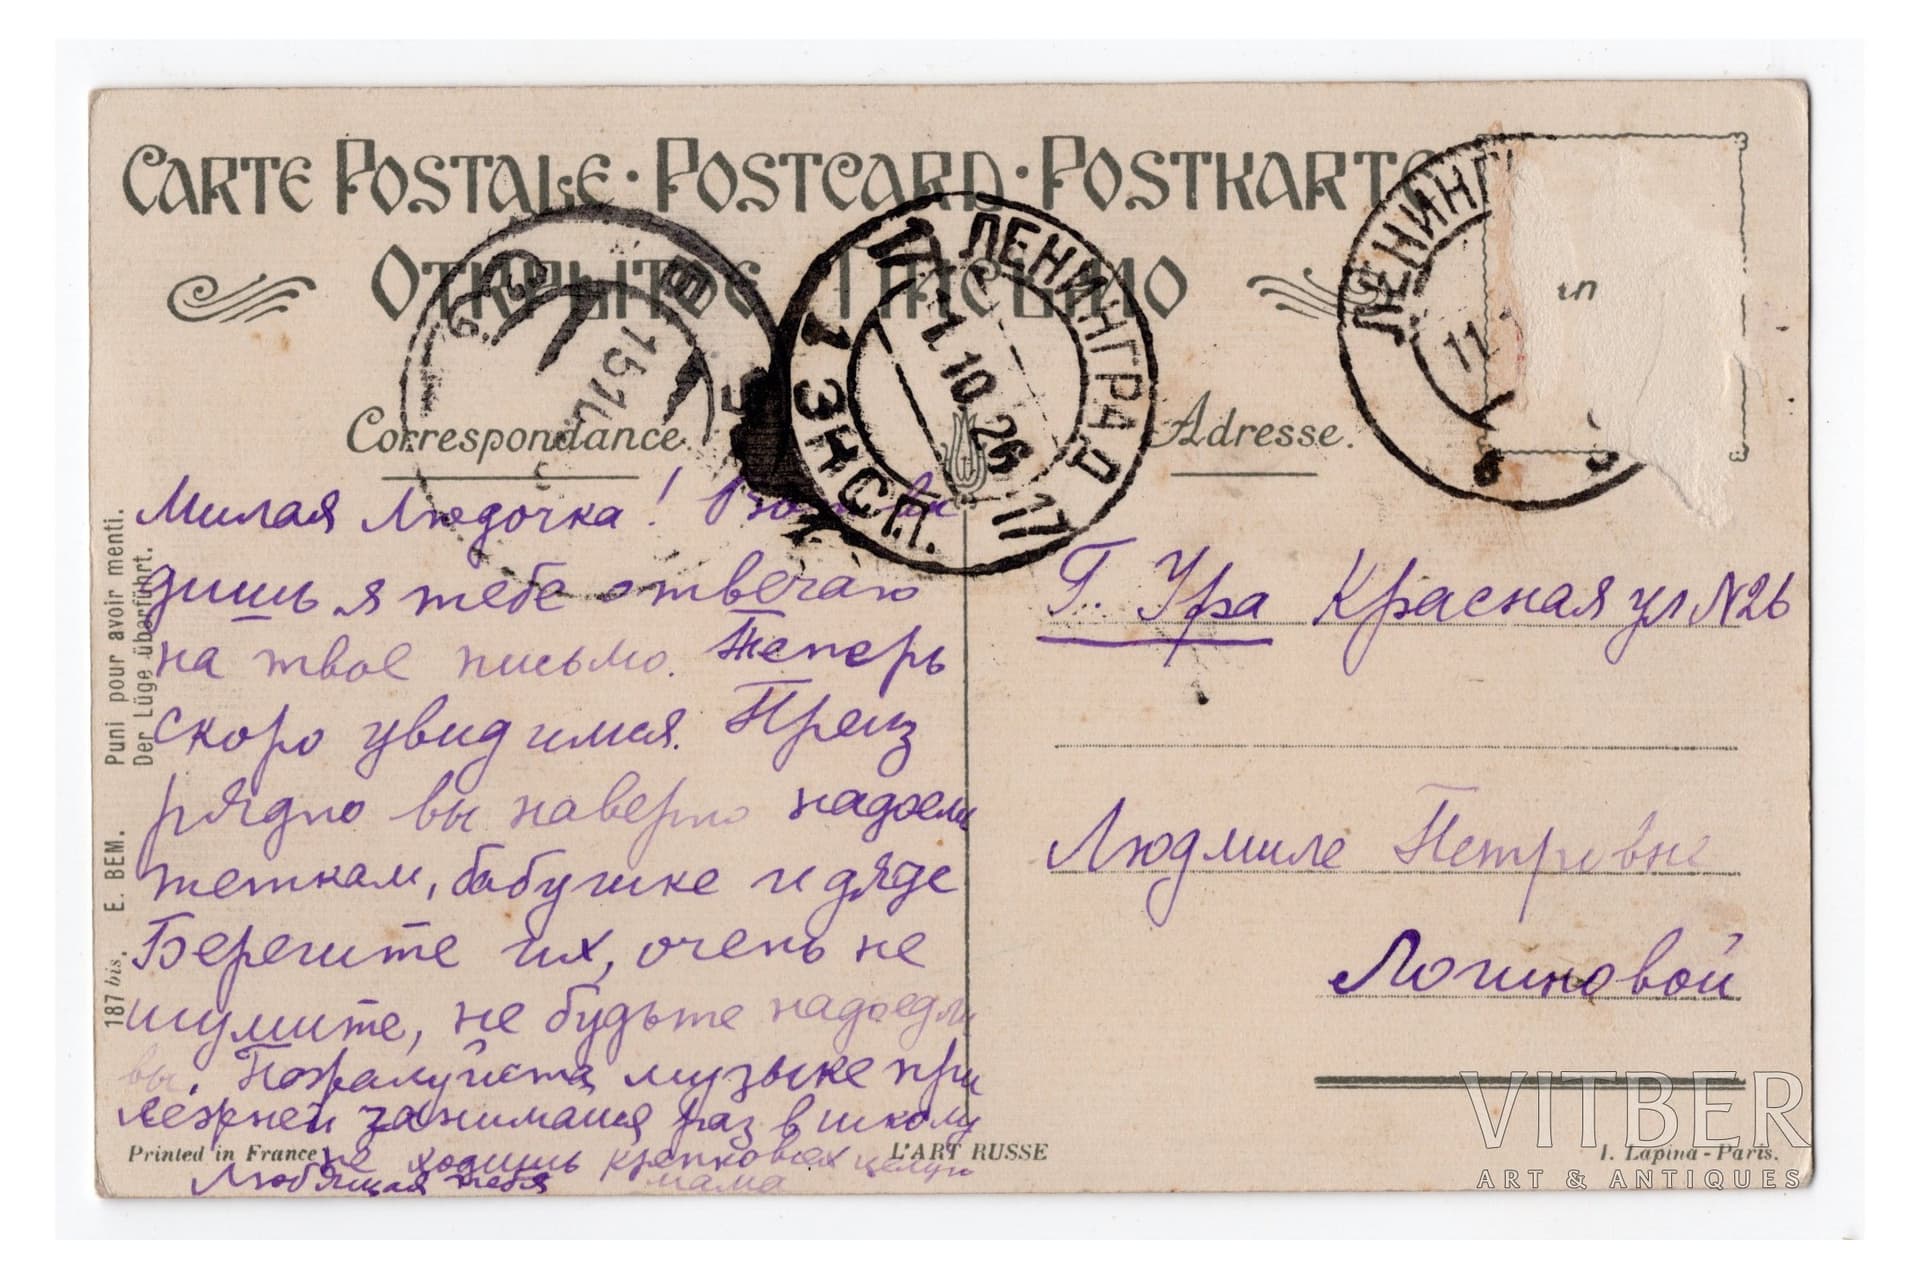 CARTE POSTALE · POSTCARD · POSTKARTE
ОТКРЫТОЕ ПИСЬМО
ЛЕНИНГРАД
1 ЭКСП.
17
1.10.26
17
ЛЕНИНГ
11
15.10
Correspondance.
Adresse.
in
Милая Людочка! Вот ви
дишь я тебе отвечаю
на твое письмо. Теперь
скоро увидимся.
рядно вы наверно надоели
теткам, бабушке и дяде
Берегите их, очень не
шумите, не будьте надоедли
вы. Пожалуйста музыке при
лежней занимайся раз в школу
не ходишь крепко всех целую
Любящая тебя мама
Г. Уфа Красная ул N26
Людмиле Петровне
Логиновой
187 bis. E. BEM. Puni pour avoir menti.
Der Lüge überführt.
Printed in France
L'ART RUSSE
I. Lapina - Paris.
VITBER
ART & ANTIQUES